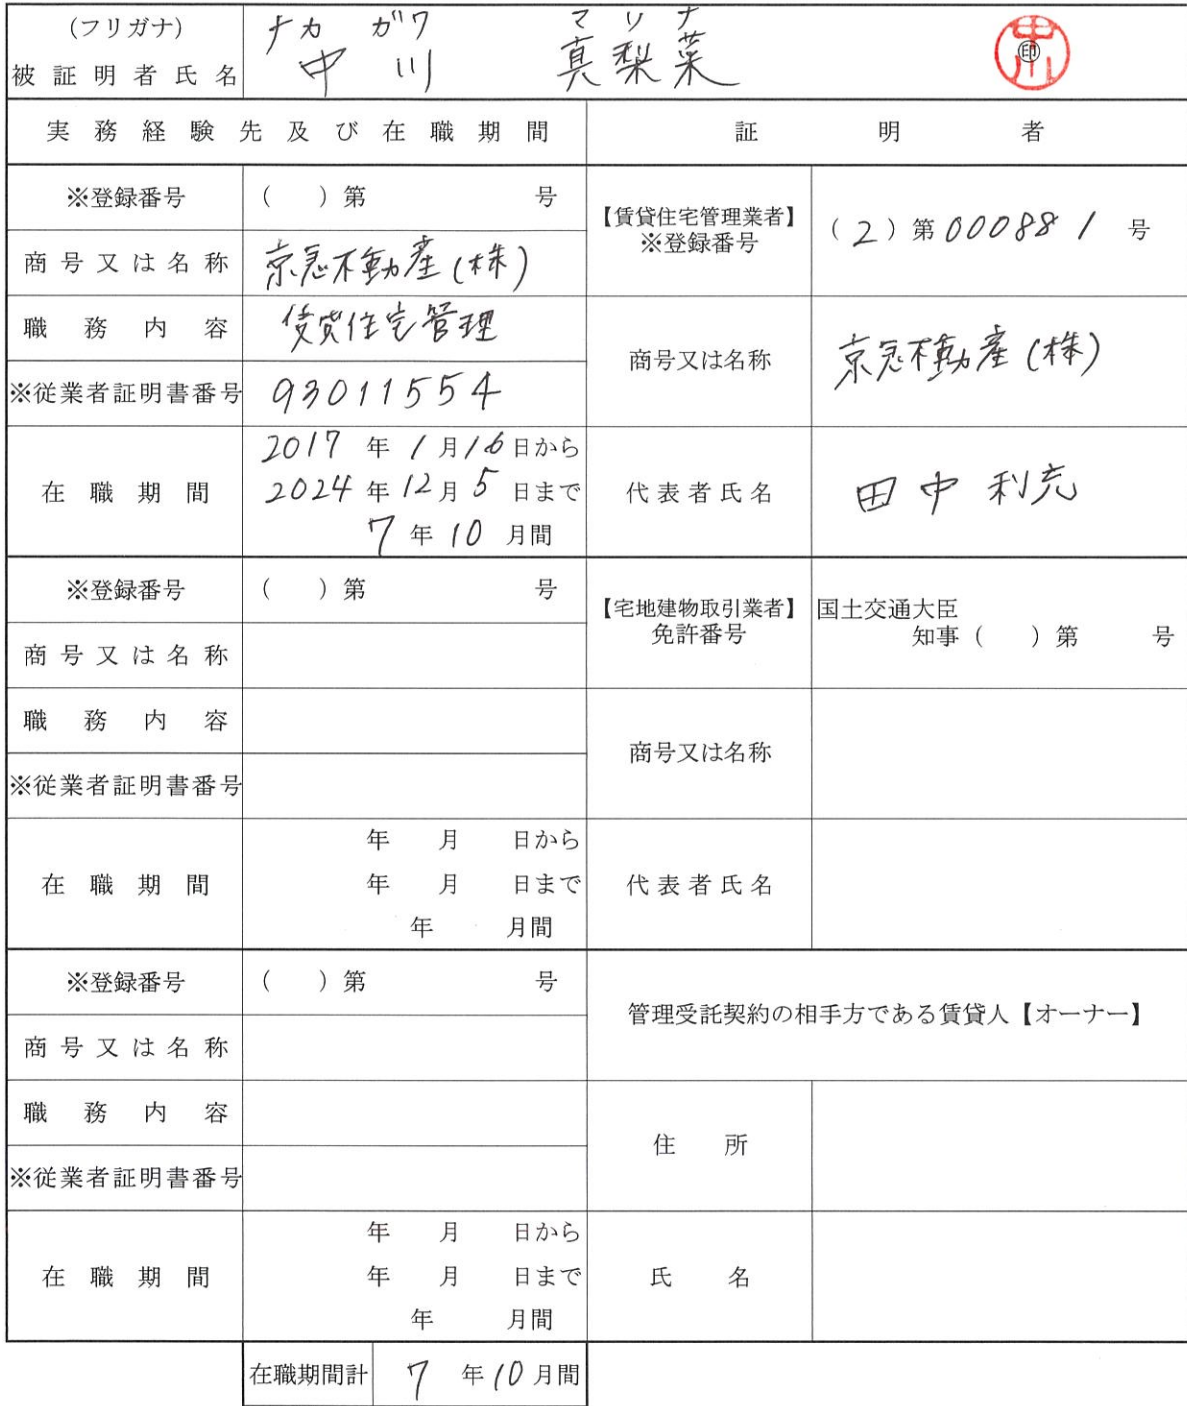 (フリガナ) ナカ ガワ マリナ
被証明者氏名 中川 真梨菜 ㊞ 中川
実務経験先及び在職期間 証明者
※登録番号 ( )第 号
【賃貸住宅管理業者】
※登録番号 (2)第000881号
商号又は名称 京急不動産(株)
職務内容 賃貸住宅管理
商号又は名称 京急不動産(株)
※従業者証明書番号 93011554
2017年1月16日から
在職期間 2024年12月5日まで
7年10月間
代表者氏名 田中利充
※登録番号 ( )第 号
【宅地建物取引業者】
免許番号
国土交通大臣
知事( )第 号
商号又は名称
職務内容
商号又は名称
※従業者証明書番号
年 月 日から
在職期間 年 月 日まで
年 月間
代表者氏名
※登録番号 ( )第 号
管理受託契約の相手方である賃貸人【オーナー】
商号又は名称
職務内容
住所
※従業者証明書番号
年 月 日から
在職期間 年 月 日まで
年 月間
氏名
在職期間計 7年10月間